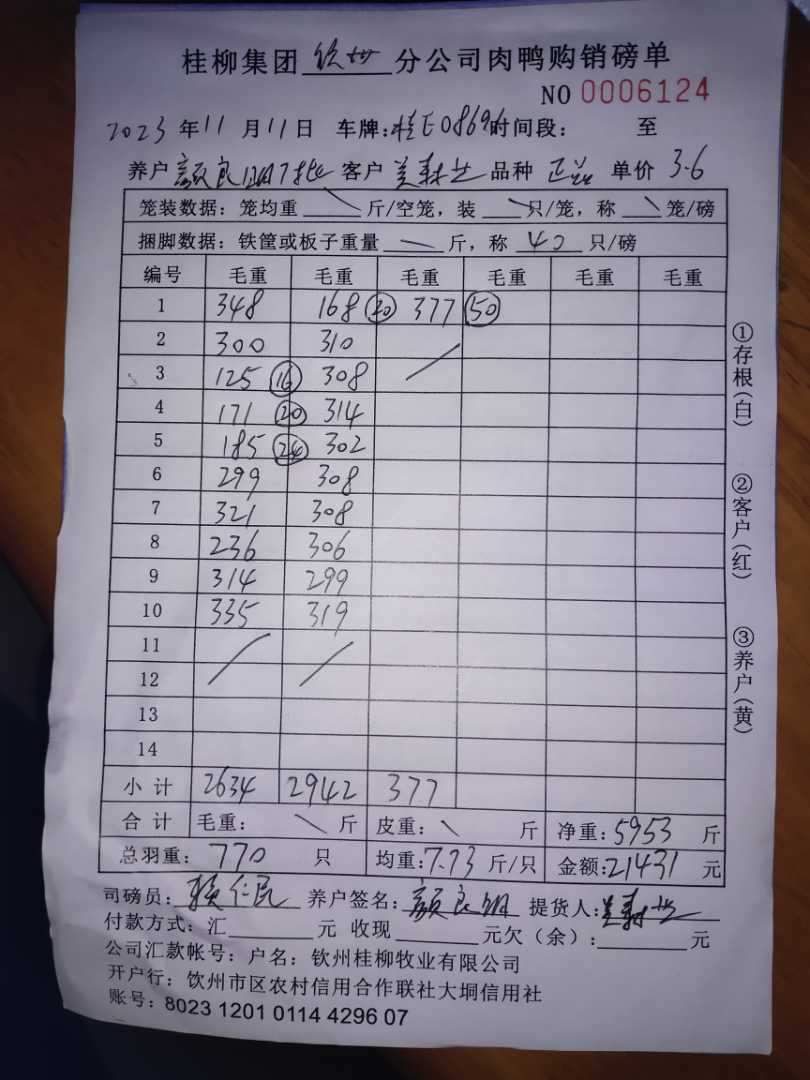 桂柳集团 钦州 分公司肉鸭购销磅单
NO 0006124
2023 年 11 月 11 日 车牌:桂E0869 时间段: 至
养户 颜良 7批 客户 品种 正 单价 3.6
笼装数据:笼均重 斤/空笼,装 只/笼,称 笼/磅
捆脚数据:铁筐或板子重量 斤,称 40 只/磅
编号 毛重 毛重 毛重 毛重 毛重 毛重
1 348 168 20 377 50
2 300 310
3 125 16 308
4 171 20 314
5 185 24 302
6 299 308
7 321 308
8 236 306
9 314 299
10 335 319
11
12
13
14
小计 2634 2942 377
合计 毛重: 斤 皮重: 斤 净重:5953 斤
总羽重: 770 只 均重:7.73 斤/只 金额:21431 元
司磅员: 赖仁民 养户签名: 颜良 提货人:
付款方式:汇 元 收现 元欠(余): 元
公司汇款帐号:户名:钦州桂柳牧业有限公司
开户行:饮州市区农村信用合作联社大垌信用社
账号:8023 1201 0114 4296 07
①存根(白)
②客户(红)
③养户(黄)